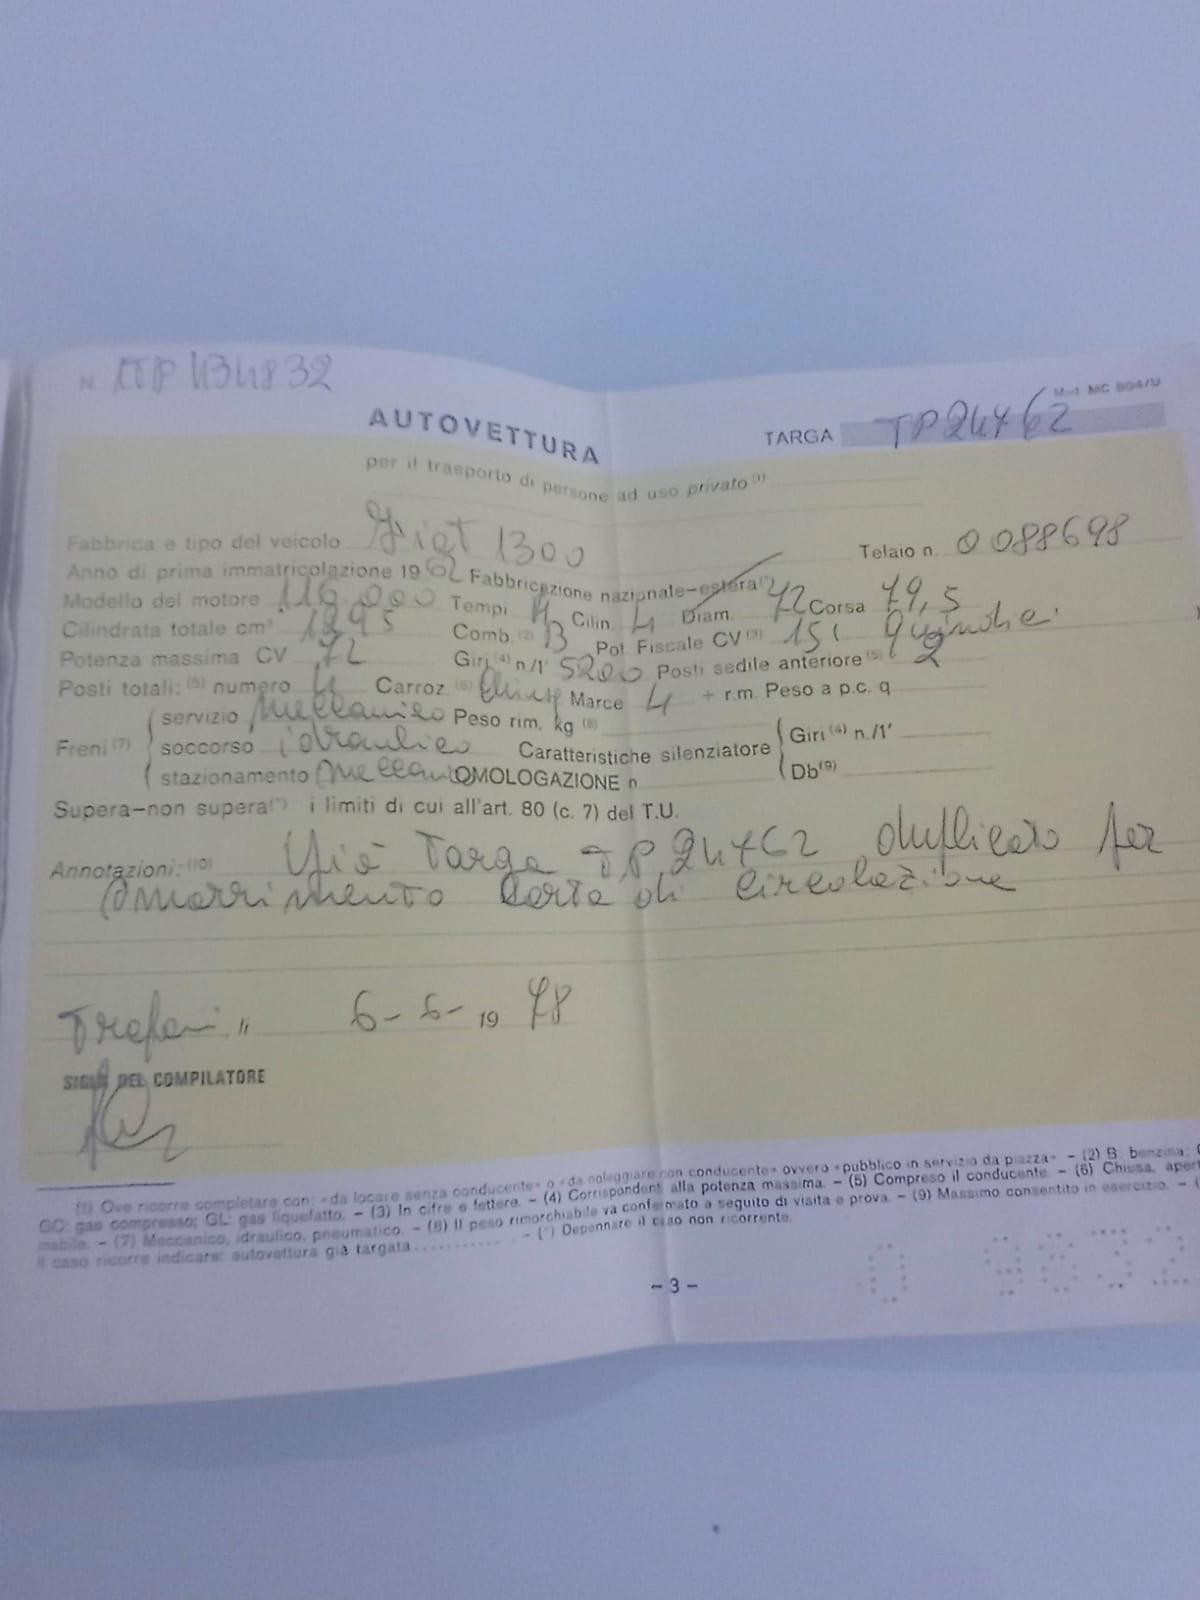 N. ATP 434832
Mod. MC 804/U
AUTOVETTURA
TARGA TP 24762
per il trasporto di persone ad uso privato (1)
Fabbrica e tipo del veicolo Fiat 1300 Telaio n. 0088698
Anno di prima immatricolazione 1962 Fabbricazione nazionale-estera (*)
Modello del motore 116.000 Tempi 4 Cilin. 4 Diam. 72 Corsa 79,5
Cilindrata totale cm³ 1295 Comb. (2) B Pot. Fiscale CV (3) 15 ( quindici
Potenza massima CV 72 Giri (4) n./1' 5200 Posti sedile anteriore (5) 2
Posti totali: (5) numero 4 Carroz. (6) Chiusa Marce 4 + r.m. Peso a p.c. q
Freni (7)
servizio Meccanico Peso rim. kg (8)
soccorso idraulico Caratteristiche silenziatore Giri (4) n./1'
stazionamento Meccanico OMOLOGAZIONE n Db (9)
Supera-non supera (*) i limiti di cui all'art. 80 (c. 7) del T.U.
Annotazioni: (10) Già Targa TP. 24762 duplicato per
smarrimento Carta di circolazione
Trapani li 6-6-1978
SIGLA DEL COMPILATORE
(1) Ove ricorre completare con: «da locare senza conducente» o «da noleggiare con conducente» ovvero «pubblico in servizio da piazza» - (2) B: benzina;
GC: gas compresso; GL: gas liquefatto. - (3) In cifre e lettere. - (4) Corrispondenti alla potenza massima. - (5) Compreso il conducente. - (6) Chiusa,
mabile. - (7) Meccanico, idraulico, pneumatico. - (8) Il peso rimorchiabile va confermato a seguito di visita e prova. - (9) Massimo consentito in esercizio. -
il caso ricorre indicare: autovettura già targata........... - (*) Depennare il caso non ricorrente.
- 3 -